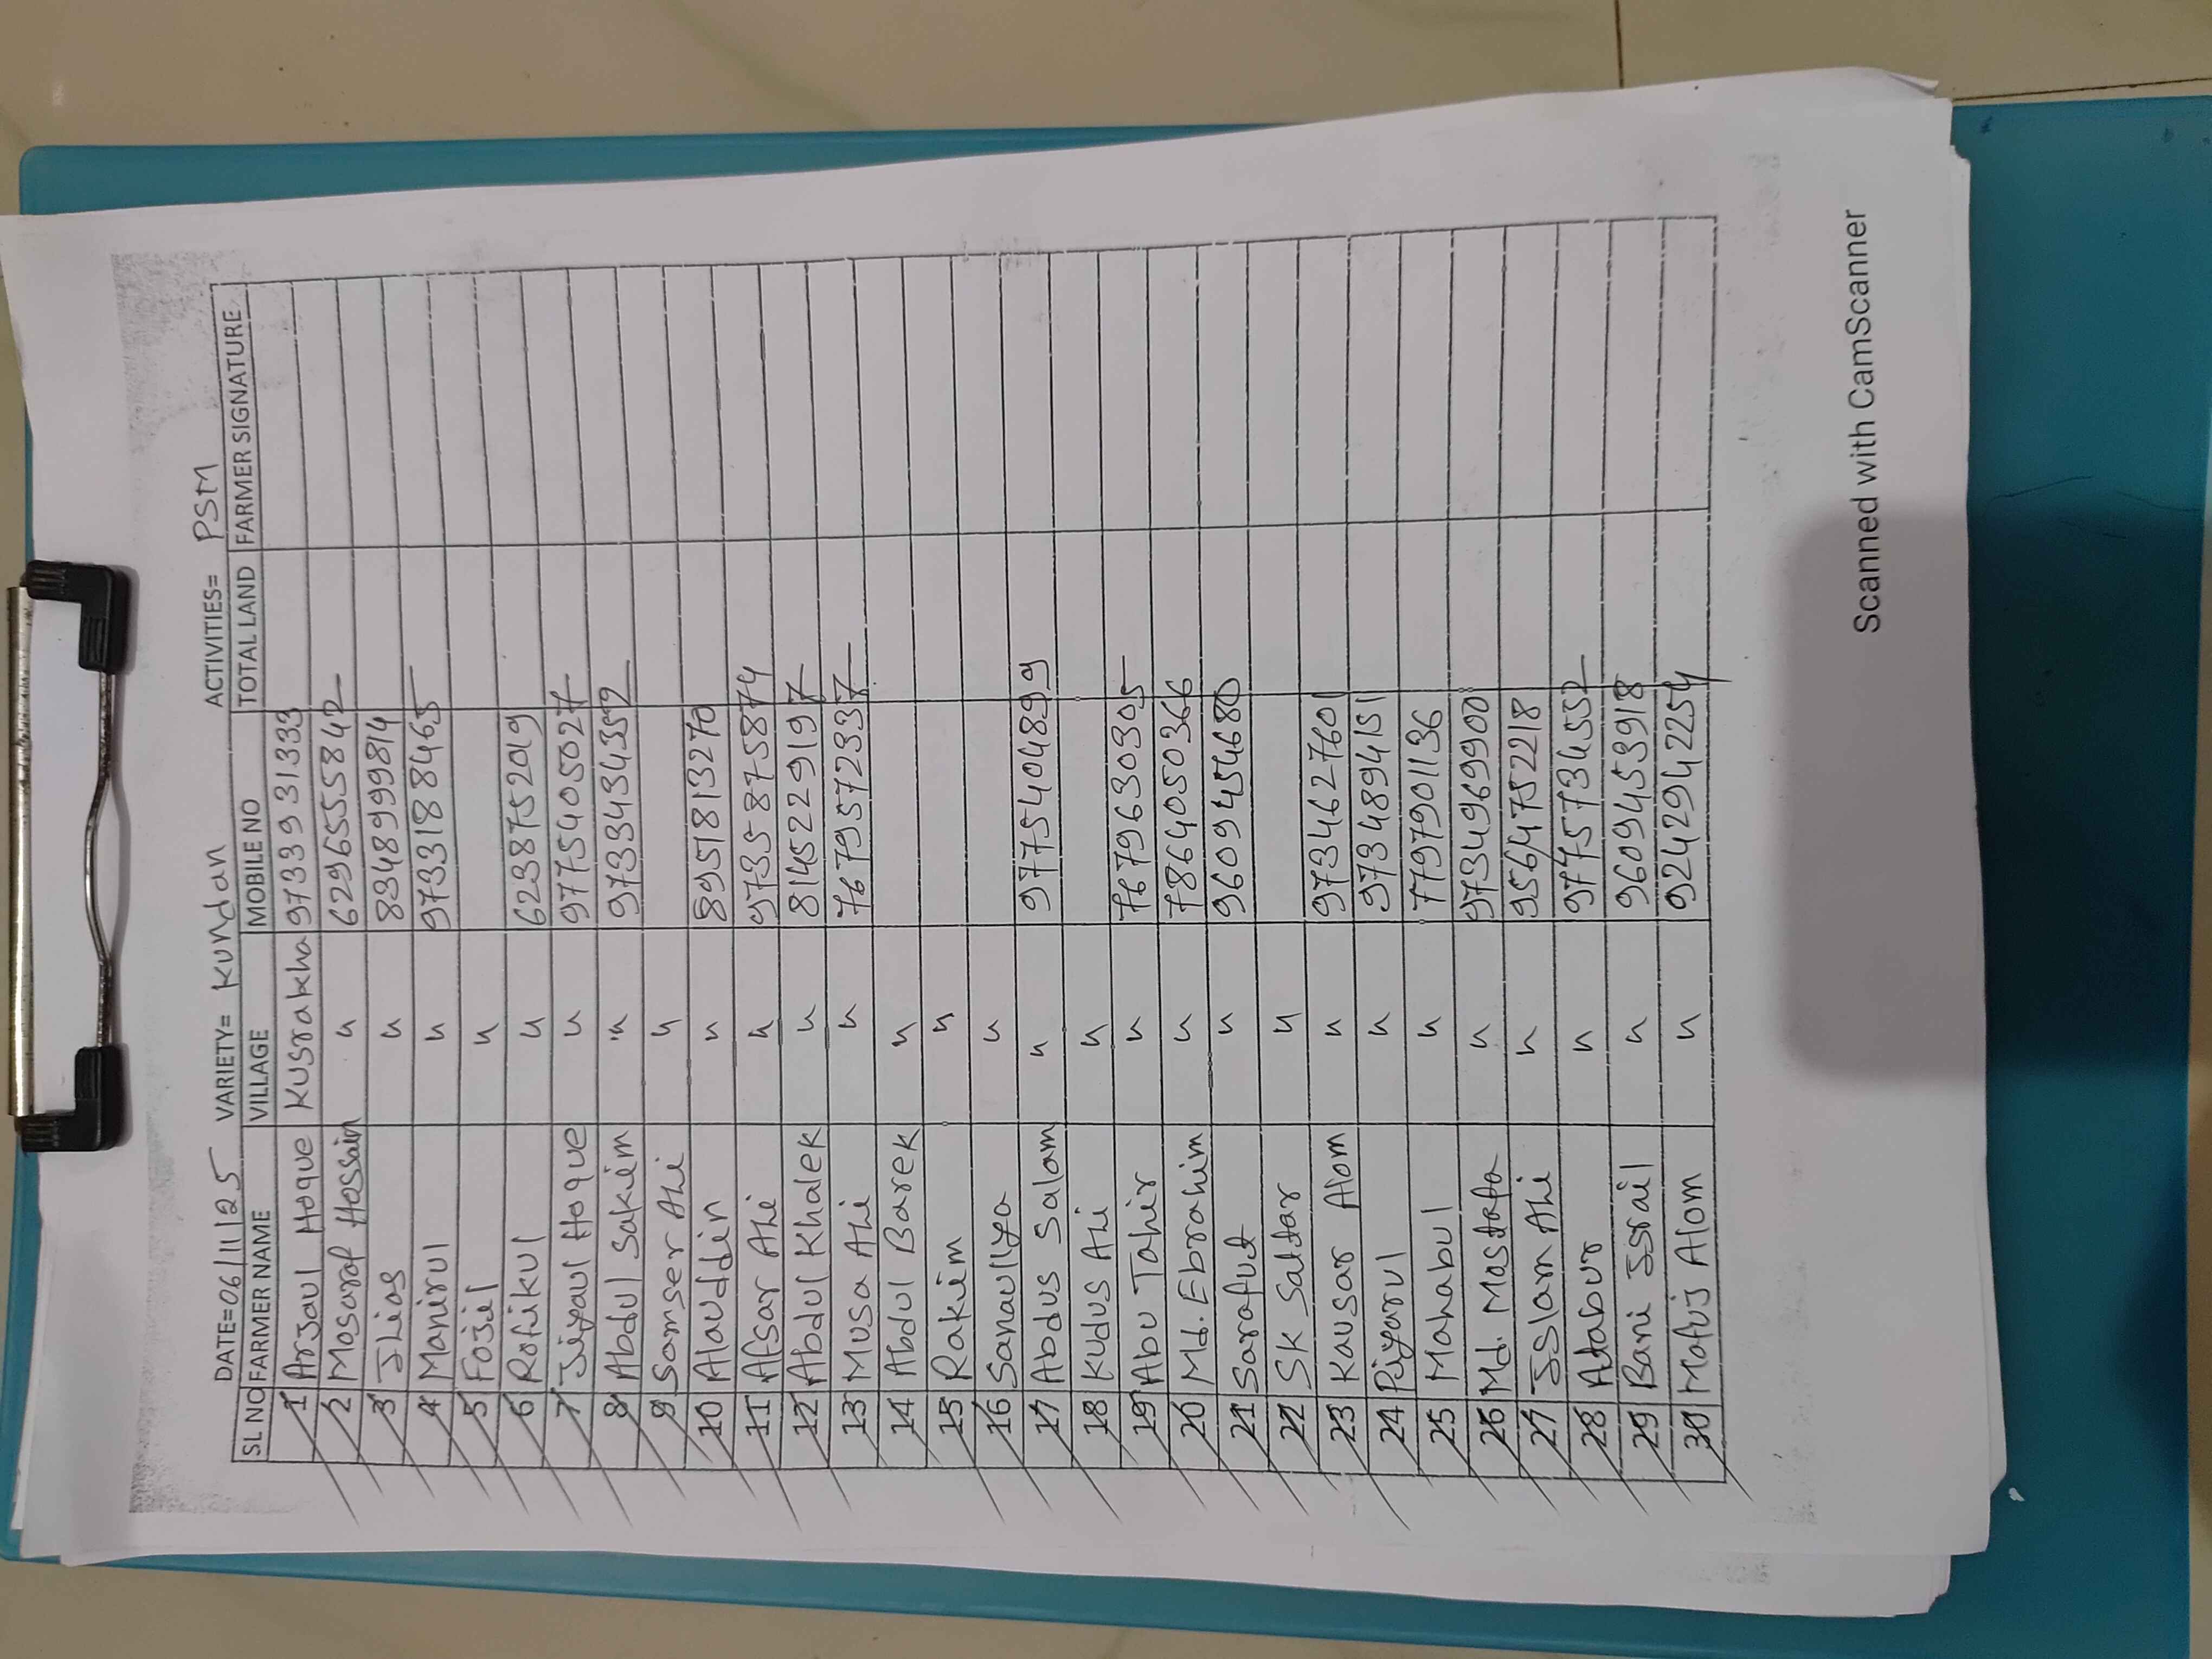 DATE= 06/11/25 VARIETY= Kundan ACTIVITIES= PSM
SL NO FARMER NAME VILLAGE MOBILE NO TOTAL LAND FARMER SIGNATURE
1 Arjaul Hoque Kusrakha 9733931333
2 Mosarof Hossain 〃 6296555842
3 Ilias 〃 8348999814
4 Manirul 〃 9733188465
5 Fojil 〃
6 Rofikul 〃 6238752019
7 Jiyaul Hoque 〃 9775405027
8 Abdul Sakim 〃 9733434352
9 Samser Ali 〃
10 Alauddin 〃 8951813270
11 Afsar Ali 〃 9735875874
12 Abdul Khalek 〃 8145229197
13 Musa Ali 〃 7679572337
14 Abdul Barek 〃
15 Rakim 〃
16 Sanaullya 〃
17 Abdus Salam 〃 9775404899
18 Kudus Ali 〃
19 Abu Tahir 〃 7679630305
20 Md. Ebrahim 〃 7864050366
21 Sarafut 〃 9609454680
22 SK Sattar 〃
23 Kausar Alom 〃 9734627601
24 Piyarul 〃 9734894151
25 Mahabul 〃 7797901136
26 Md. Mostafa 〃 9734969900
27 Islam Ali 〃 9564752218
28 Ataour 〃 9775734552
29 Bani Israil 〃 9609453918
30 Mofuj Alom 〃 9242942254
Scanned with CamScanner